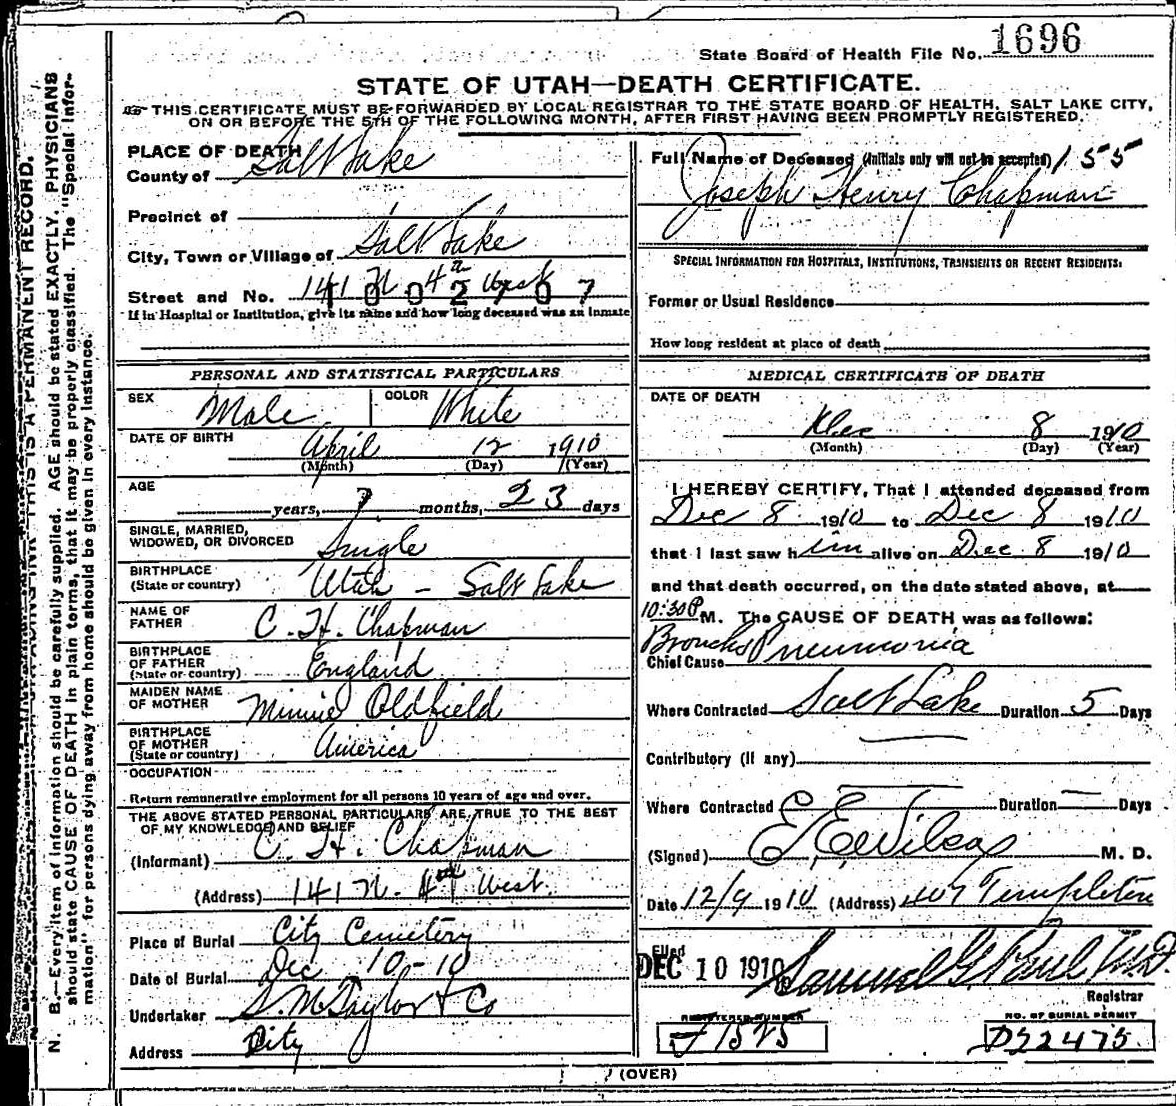 State Board of Health File No. 1696
STATE OF UTAH—DEATH CERTIFICATE.
THIS CERTIFICATE MUST BE FORWARDED BY LOCAL REGISTRAR TO THE STATE BOARD OF HEALTH, SALT LAKE CITY,
ON OR BEFORE THE 5TH OF THE FOLLOWING MONTH, AFTER FIRST HAVING BEEN PROMPTLY REGISTERED.
PLACE OF DEATH
County of Salt Lake
Precinct of
City, Town or Village of Salt Lake
Street and No. 141 N 4th West
1 0 0 4 2 7 0 7
If in Hospital or Institution, give its name and how long deceased was an inmate
PERSONAL AND STATISTICAL PARTICULARS
SEX Male COLOR White
DATE OF BIRTH April 12 1910
(Month) (Day) (Year)
AGE
years, 7 months, 23 days
SINGLE, MARRIED,
WIDOWED, OR DIVORCED Single
BIRTHPLACE
(State or country) Utah - Salt Lake
NAME OF
FATHER C. H. Chapman
BIRTHPLACE
OF FATHER
(State or country) England
MAIDEN NAME
OF MOTHER Minnie Oldfield
BIRTHPLACE
OF MOTHER
(State or country) America
OCCUPATION
Return remunerative employment for all persons 10 years of age and over.
THE ABOVE STATED PERSONAL PARTICULARS ARE TRUE TO THE BEST
OF MY KNOWLEDGE AND BELIEF
(Informant) C. H. Chapman
(Address) 141 N. 4th West.
Place of Burial City Cemetery
Date of Burial Dec 10-10
Undertaker S. M. Taylor & Co
Address City
Full Name of Deceased (Initials only will not be accepted) 155
Joseph Henry Chapman
SPECIAL INFORMATION FOR HOSPITALS, INSTITUTIONS, TRANSIENTS OR RECENT RESIDENTS:
Former or Usual Residence
How long resident at place of death
MEDICAL CERTIFICATE OF DEATH
DATE OF DEATH
Dec 8 1910
(Month) (Day) (Year)
I HEREBY CERTIFY, That I attended deceased from
Dec 8 1910 to Dec 8 1910
that I last saw him alive on Dec 8 1910
and that death occurred, on the date stated above, at
10:30 P M. The CAUSE OF DEATH was as follows:
Chief Cause Broncho Pneumonia
Where Contracted Salt Lake Duration 5 Days
Contributory (if any)
Where Contracted Duration — Days
(Signed) E. E. Wilcox M. D.
Date 12/9 1910 (Address) 407 Templeton
Filed
DEC 10 1910 Samuel G. Paul, M.D.
Registrar
REGISTERED NUMBER
J 1525
NO. OF BURIAL PERMIT
D22475
(OVER)
THIS IS A PERMANENT RECORD.
N. B.—Every item of information should be carefully supplied. AGE should be stated EXACTLY. PHYSICIANS
should state CAUSE OF DEATH in plain terms, that it may be properly classified. The "Special Infor-
mation" for persons dying away from home should be given in every instance.